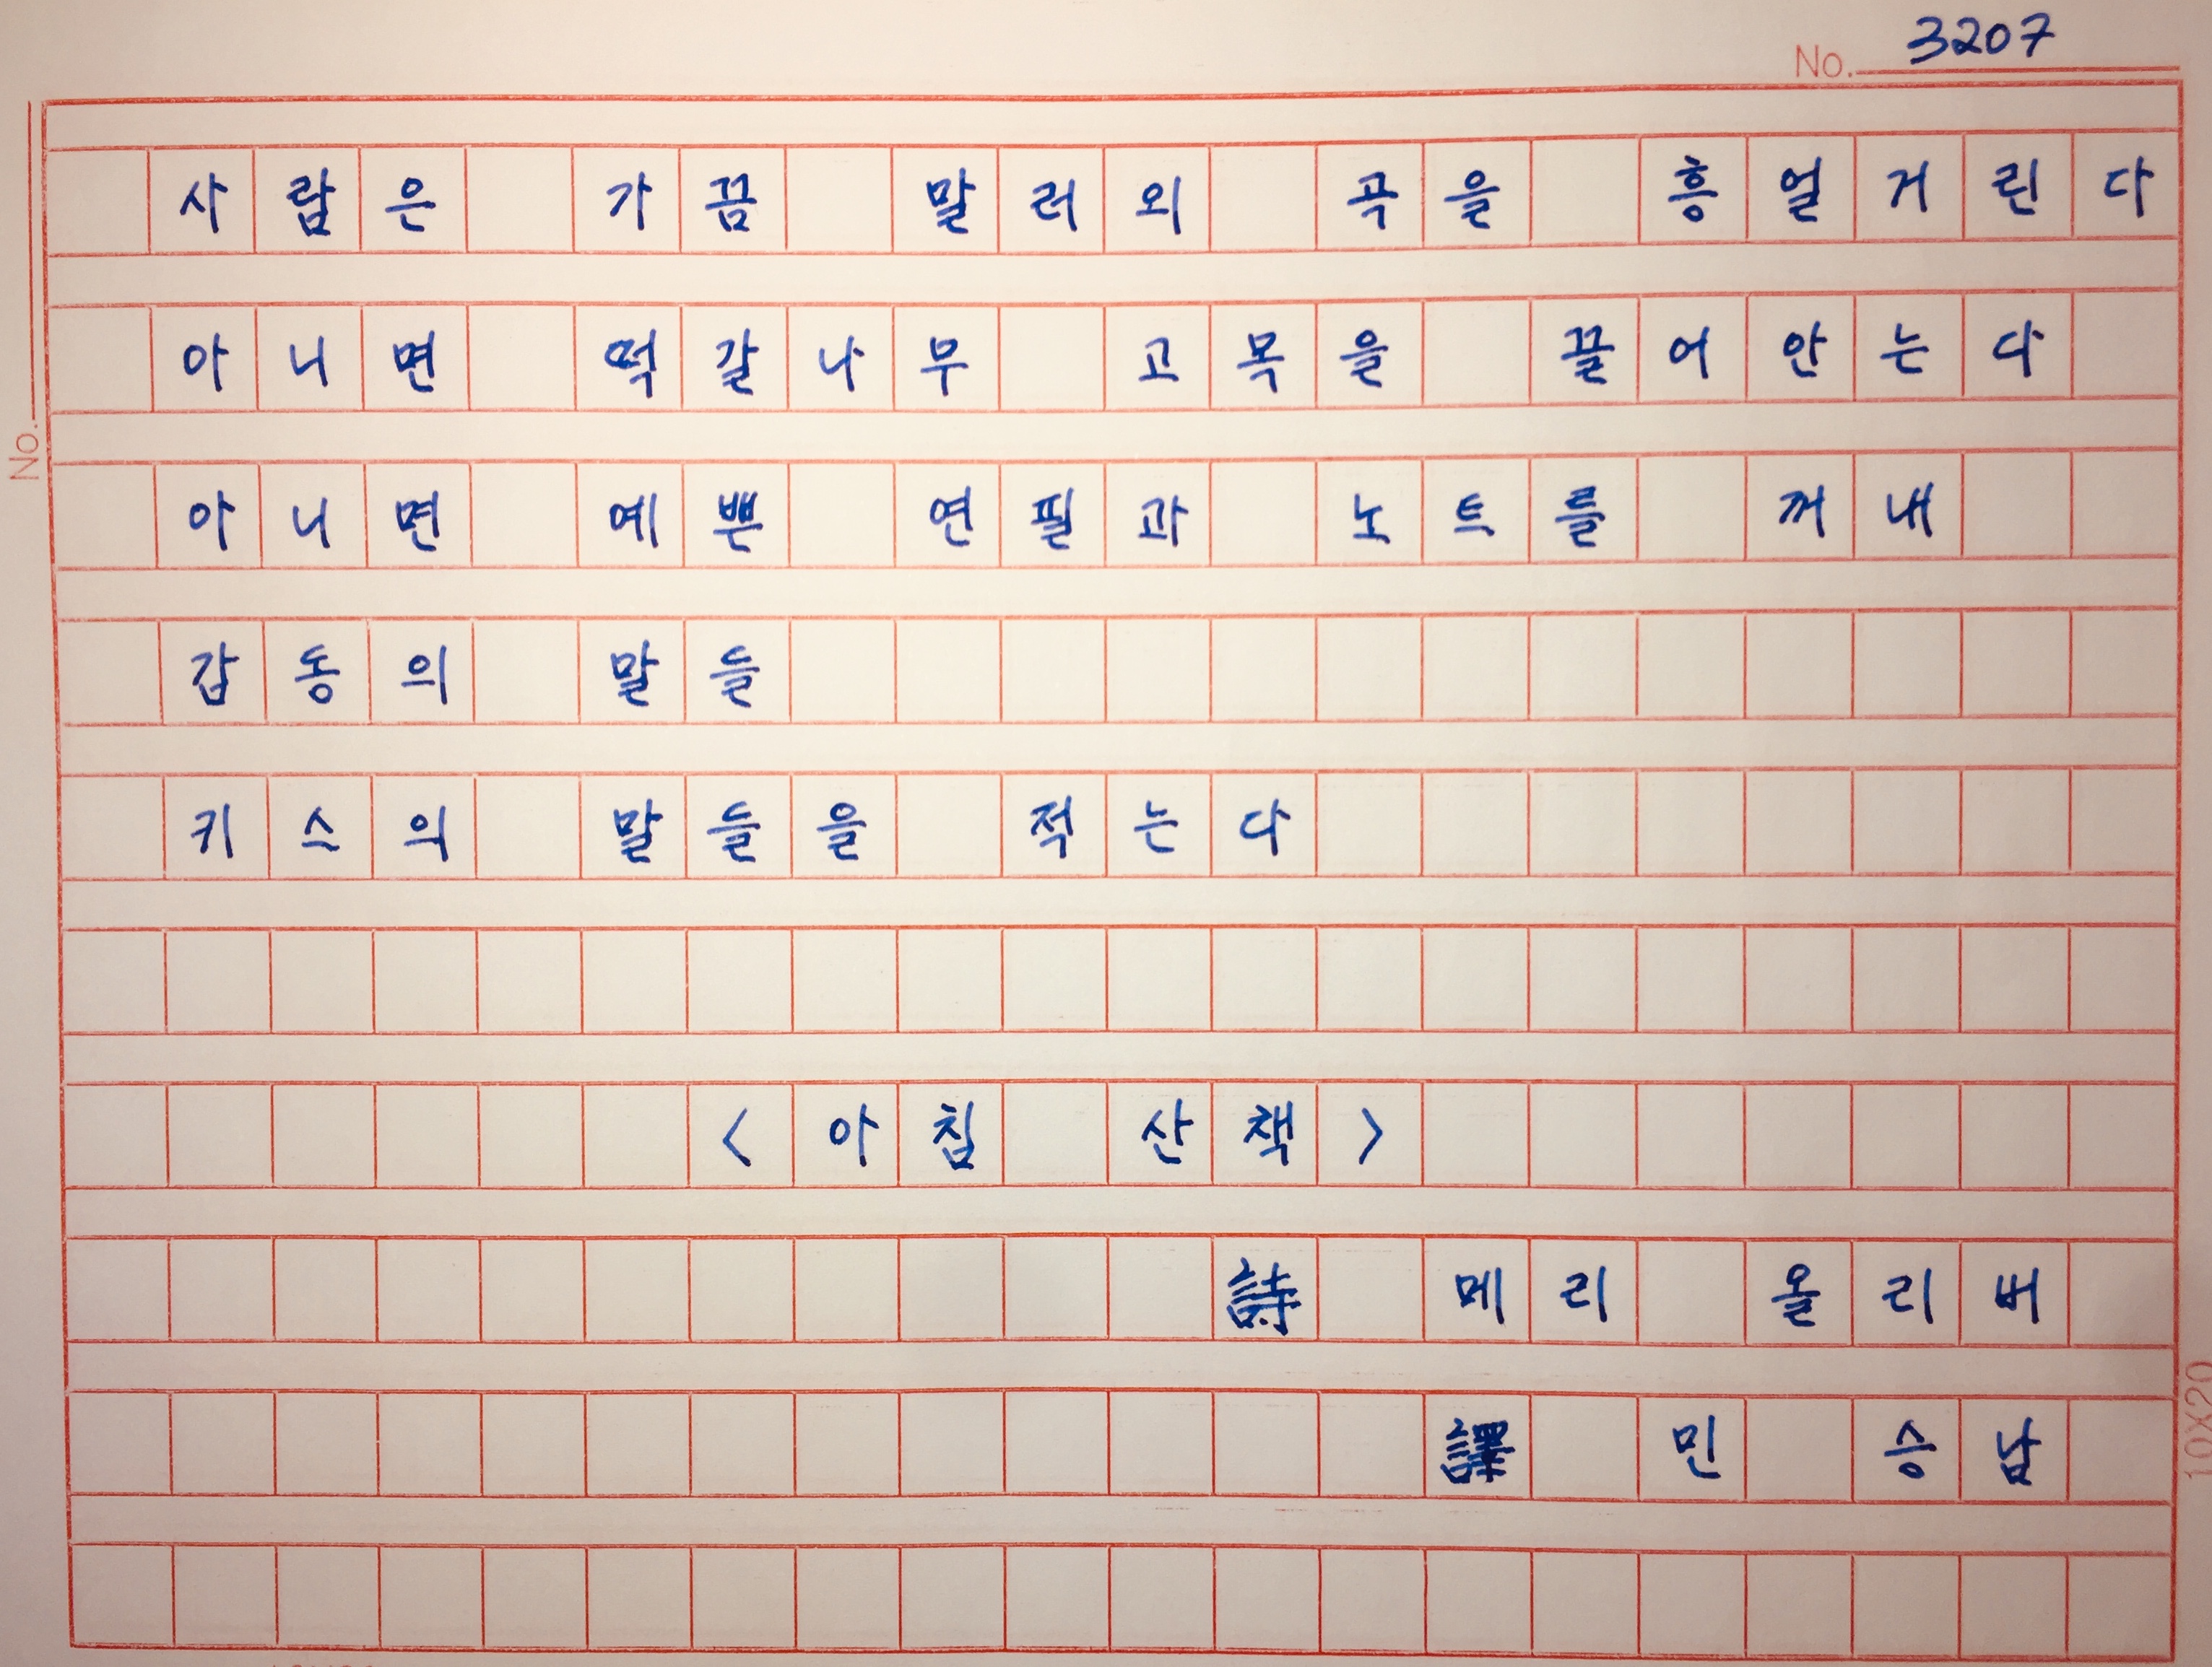 No. 3207
사람은 가끔 말러의 곡을 흥얼거린다
아니면 떡갈나무 고목을 끌어안는다
아니면 예쁜 연필과 노트를 꺼내
감동의 말들
키스의 말들을 적는다
<아침 산책>
詩 메리 올리버
譯 민 승남
No.
10X20